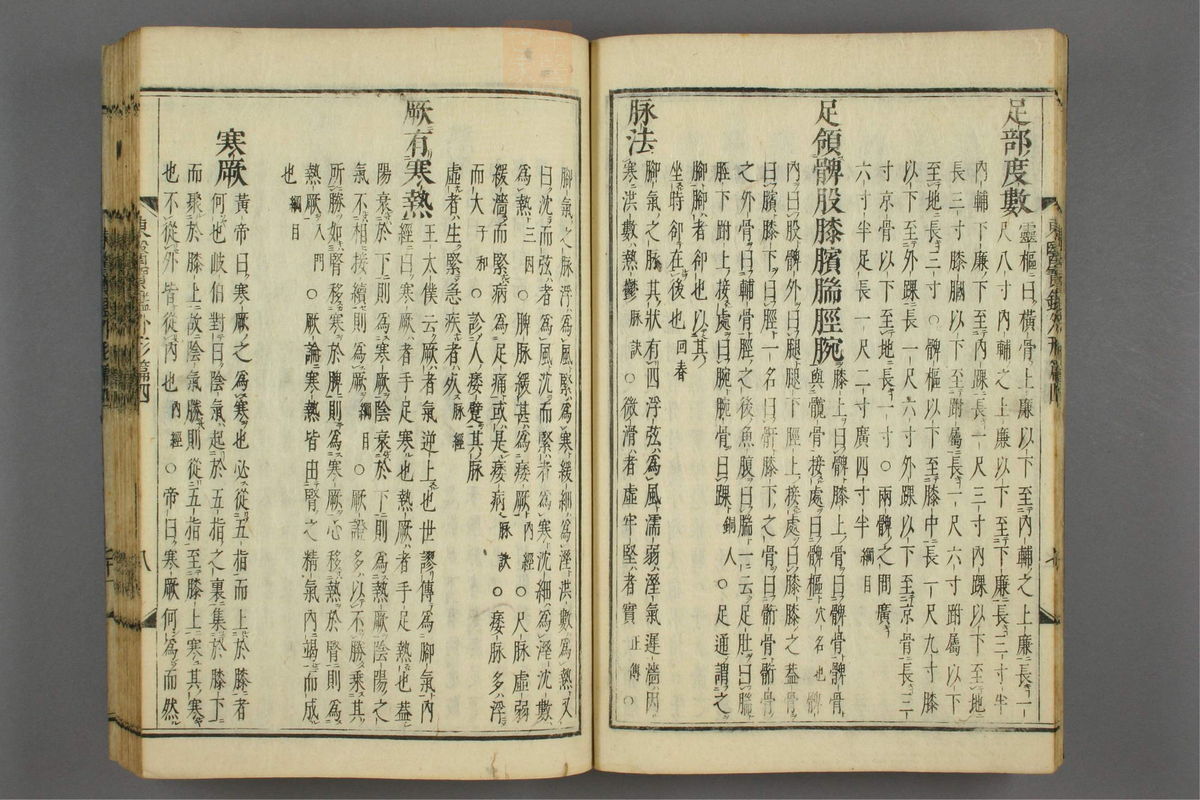 足部度數
靈樞曰橫骨上廉以下至內輔之上廉長一
尺八寸內輔之上廉以下至下廉長三寸半
內輔下廉下至內踝長一尺三寸內踝以下至地
長三寸膝膕以下至跗屬長一尺六寸跗屬以下
至地長三寸○髀樞以下至膝中長一尺九寸膝
以下至外踝長一尺六寸外踝以下至京骨長三
寸京骨以下至地長一寸○兩髀之間廣
六寸半足長一尺二寸廣四寸半綱目
足領髀股膝臏腨脛腕
膝上曰髀膝上骨曰髀骨髀骨
與髖骨接處曰髀樞穴名也髀
內曰股髀外曰腿腿下脛上接處曰膝膝之蓋骨
曰臏膝下曰脛一名曰䯒膝下之骨曰䯒骨䯒骨
之外骨曰輔骨脛之後魚腹曰腨一云足肚曰腨
脛下跗上接處曰腕腕骨曰踝銅人○足通謂之
腳腳者卻也以其
坐時卻在後也回春
脉法
腳氣之脉其狀有四浮弦爲風濡弱溼氣遲濇因
寒洪數熱鬱脉訣○微滑者虛牢堅者實正傳○
腳氣之脉浮爲風緊爲寒緩細爲溼洪數爲熱又
曰沈而弦者爲風沈而緊者爲寒沈細爲溼沈數
爲熱三因○脾脉緩甚爲痿厥內經○尺脉虛弱
緩濇而緊病爲足痛或是痿病脉訣○痿脉多浮
而大子和○診人痿躄其脉
虛者生緊急疾者死脉經
厥有寒熱
王太僕云厥者氣逆上也世謬傳爲腳氣內
經曰寒厥者手足寒也熱厥者手足熱也蓋
陽衰於下則爲寒厥陰衰於下則爲熱厥陰陽之
氣不相接續則爲厥綱目○厥證多以不勝乘其
所勝如腎移寒於脾則爲寒厥心移熱於腎則爲
熱厥入門○厥論寒熱皆由腎之精氣內竭而成
也綱目
寒厥
黃帝曰寒厥之爲寒也必從五指而上於膝者
何也岐伯對曰陰氣起於五指之裏集於膝下
而聚於膝上故陰氣勝則從五指至膝上寒其寒
也不從外皆從內也內經○帝曰寒厥何爲而然
東醫寶鑑外形篇四
八